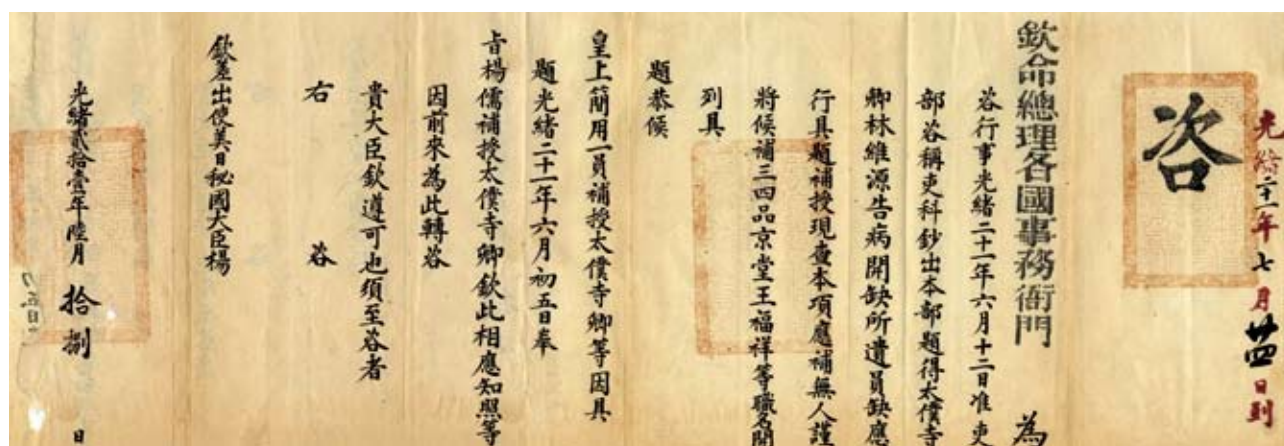 光緒二十一年七月廿四日到
咨
欽命總理各國事務衙門 為
咨行事光緒二十一年六月十二日准吏
部咨稱吏科鈔出本部題得太僕寺
卿林維源告病開缺所遺員缺應
行具題補授現查本項應補無人謹
將候補三四品京堂王福祥等職名開
列具
題恭候
皇上簡用一員補授太僕寺卿等因具
題光緒二十一年六月初五日奉
旨楊儒補授太僕寺卿欽此相應知照等
因前來為此轉咨
貴大臣欽遵可也須至咨者
右 咨
欽差出使美日秘國大臣楊
光緒貳拾壹年陸月 拾捌 日